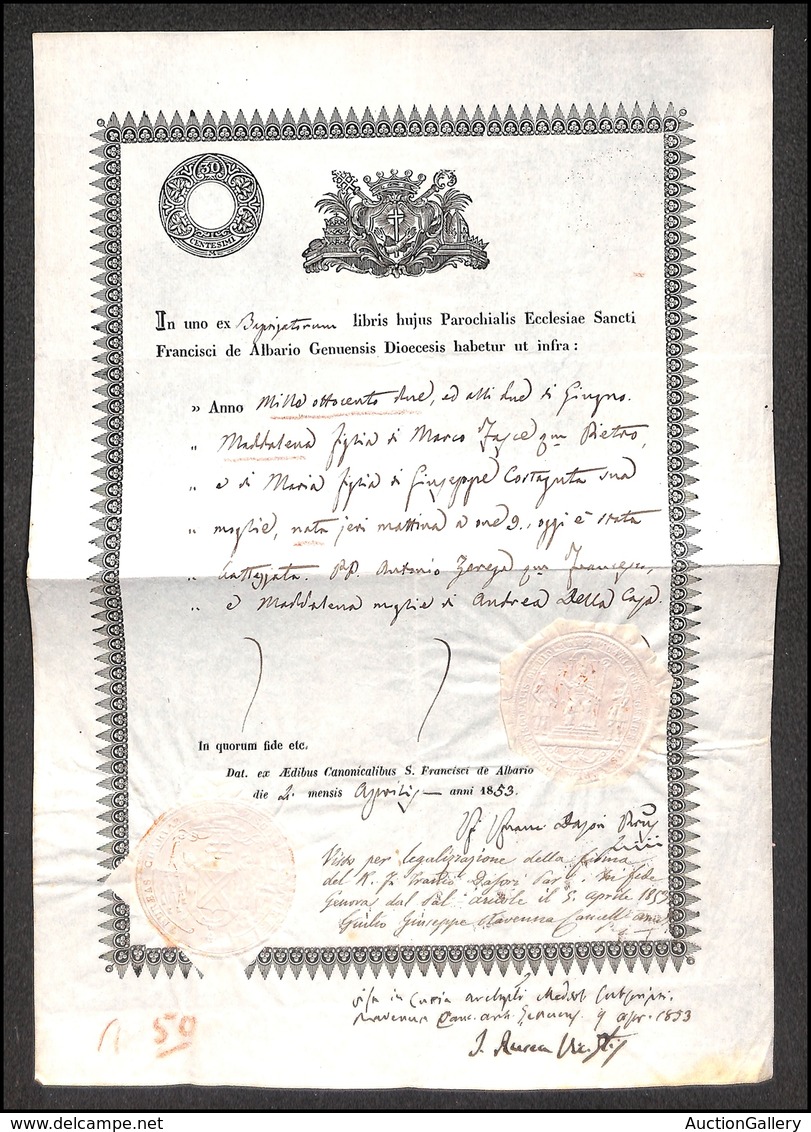 30
CENTESIMI
In uno ex Baptizatorum libris hujus Parochialis Ecclesiae Sancti
Francisci de Albario Genuensis Dioecesis habetur ut infra:
» Anno Mille ottocento due, ed alli due di Giugno.
» Maddalena figlia di Marco Fasce qm Pietro,
» e di Maria figlia di Giuseppe Costaguta sua
» moglie, nata jeri mattina a ore 9, oggi è stata
» battezzata. PP. Antonio Zerega qm Francesco,
» e Maddalena moglie di Andrea Della Casa.
In quorum fide etc.
Dat. ex Ædibus Canonicalibus S. Francisci de Albario
die 2. mensis Aprilis anni 1853.
Visto per legalizzazione della firma
del R. Dasori Par. In fede
Genova dal Pal. il 5. aprile 1853
Giulio Giuseppe Ravenna Cancell.
Visa in Curia
9 apr. 1853
50
AuctionGallery